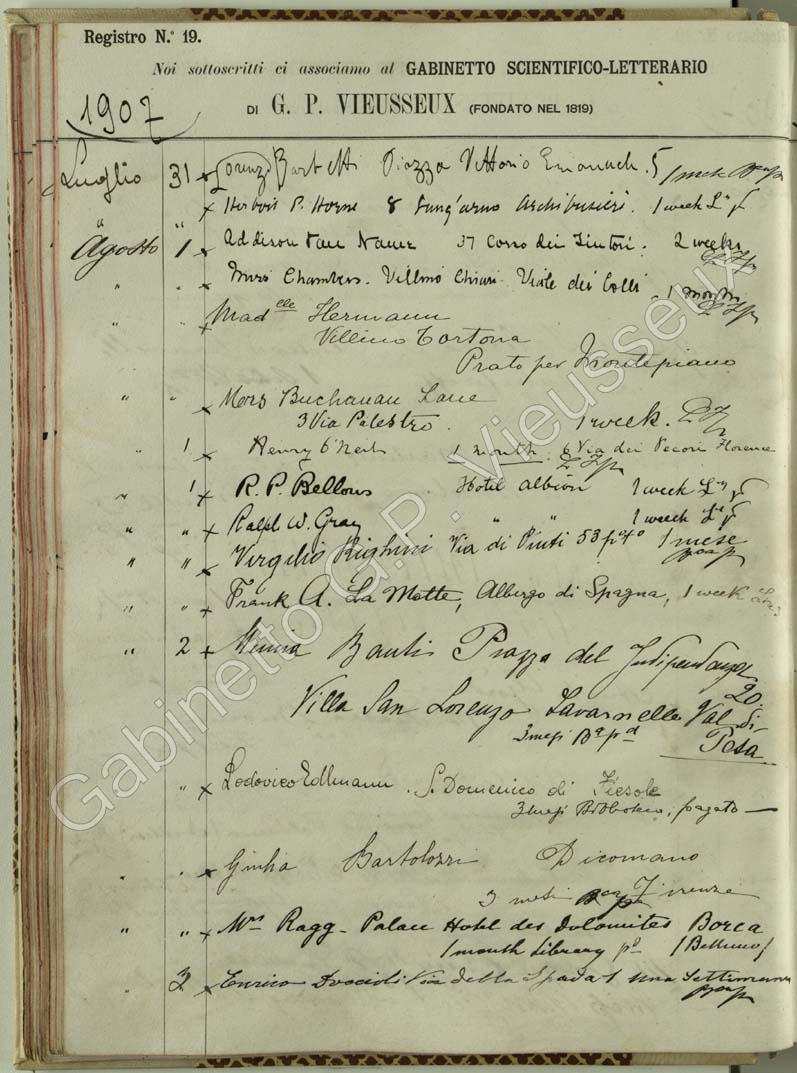 Registro N.° 19.
Noi sottoscritti ci associamo al GABINETTO SCIENTIFICO-LETTERARIO
DI G. P. VIEUSSEUX (FONDATO NEL 1819)
1907
Luglio 31 x Lorenzo Piazza Vittorio 5 1 mese
" " x Herbert P. Horne 8 Lung'arno Archibusieri. 1 week
Agosto 1 x Addison 37 Corso dei Tintori. 2 weeks
" " x Chambers. Viale dei Colli - 1 month
" " x Mad.elle Hermann
Villino Tortona
Prato per Montepiano
" " x Mors Buchanan Lane
3 Via Palestro. 1 week.
" 1 x Henry O'Neil 1 month. 6 Via dei Pecori Florence
" 1 x R. P. Bellows Hotel Albion 1 week
" " x Ralph W. Gray " " 1 week
" " x Virgilio Righini Via di Pinti 53 1 mese
" " x Frank A. La Motte, Albergo di Spagna, 1 week
" 2 x Banti Piazza del
20.
Villa San Lorenzo Val di
3 mesi Pesa
" x Lodovico Edlmann. S. Domenico di Fiesole
3 mesi pagato
" " x Giulia Bartolozzi Dicomano
3 mesi Firenze
" " x Mrs Ragg - Palace Hotel des Dolomites Borca
1 month Library pd (Belluno)
x Enrico Via della Spada 1 una Settimana
Gabinetto G.P. Vieusseux